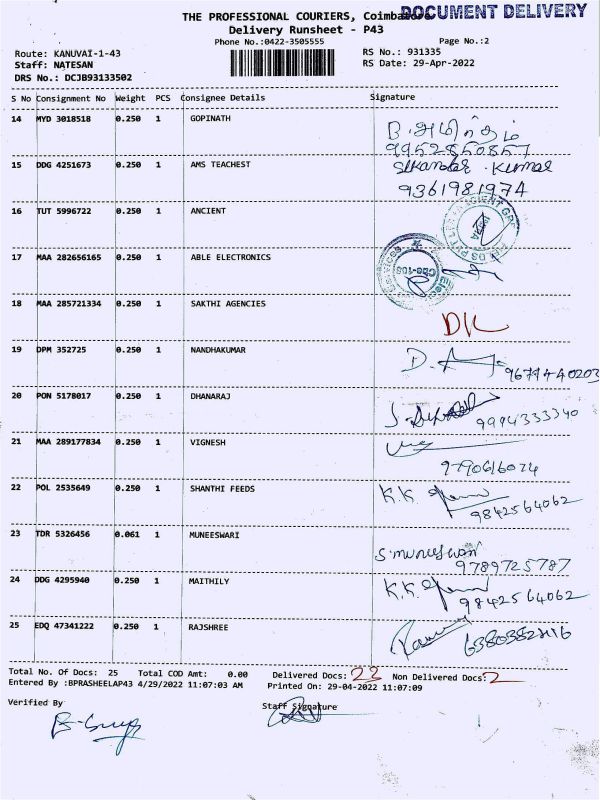 THE PROFESSIONAL COURIERS, Coimbatore
DOCUMENT DELIVERY
Delivery Runsheet - P43
Phone No.:0422-3505555
Page No.:2
Route: KANUVAI-1-43
RS No.: 931335
Staff: NATESAN
RS Date: 29-Apr-2022
DRS No.: DCJB93133502
S No Consignment No Weight PCS Consignee Details Signature
14 MYD 3018518 0.250 1 GOPINATH
B. அமிர்தம்
9952850857
15 DDG 4251673 0.250 1 AMS TEACHEST
Sikandar Kumar
9361981974
16 TUT 5996722 0.250 1 ANCIENT
17 MAA 282656165 0.250 1 ABLE ELECTRONICS
18 MAA 285721334 0.250 1 SAKTHI AGENCIES
19 DPM 352725 0.250 1 NANDHAKUMAR
9677440203
20 PON 5178017 0.250 1 DHANARAJ
9994333340
21 MAA 289177834 0.250 1 VIGNESH
9790616074
22 POL 2535649 0.250 1 SHANTHI FEEDS
K.K.
9842564062
23 TDR 5326456 0.061 1 MUNEESWARI
9789725787
24 DDG 4295940 0.250 1 MAITHILY
K.K.
9842564062
25 EDQ 47341222 0.250 1 RAJSHREE
Total No. Of Docs: 25 Total COD Amt: 0.00 Delivered Docs: 23 Non Delivered Docs: 2
Entered By :BPRASHEELAP43 4/29/2022 11:07:03 AM Printed On: 29-04-2022 11:07:09
Verified By
Staff Signature